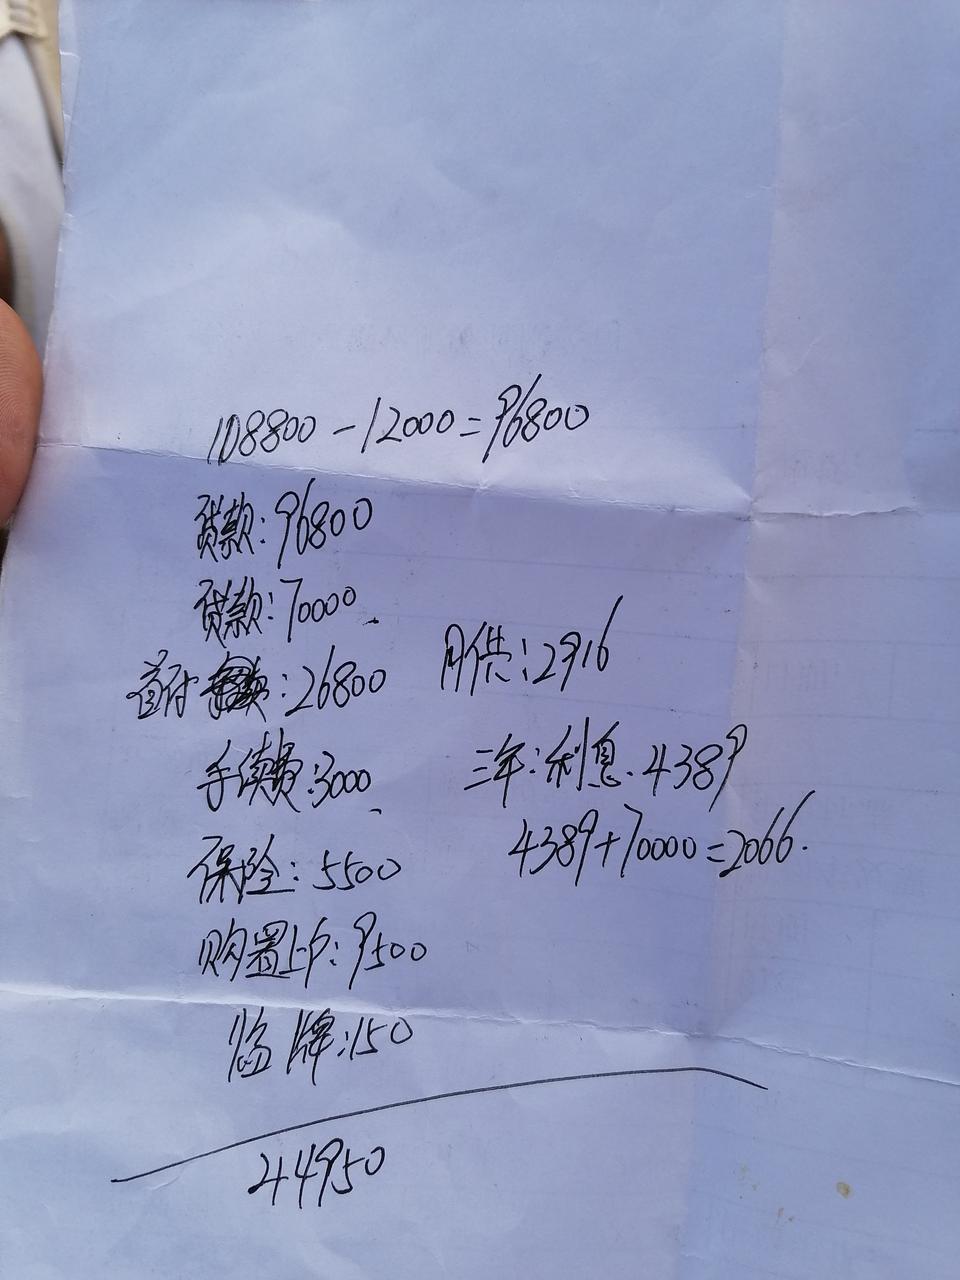 108800-12000=96800
贷款:96800
贷款:70000
首付 :26800
月供:2916
手续费:3000
三年:利息.4389
4389+70000=2066.
保险:5500
购置上户:9500
临牌:150
44950